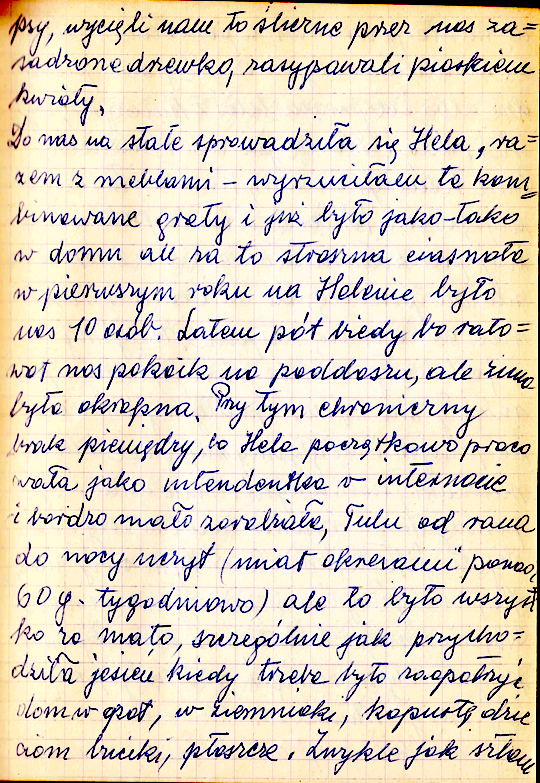 psy, wycięli nam to śliczne przez nas za=
sadzone drzewko, zasypawali piaskiem
kwiaty.
Do nas na stałe sprowadziła się Hela, ra=
zem z meblami – wyrzuciłam te kom=
binowane graty i już było jako-tako
w domu ale za to straszna ciasnota
w pierwszym roku na Helenie było
nas 10 osób. Latem pół biedy bo rato=
wał nas pokoik na poddaszu, ale zima
była okropna. Przy tym chroniczny
brak pieniędzy, bo Hela początkowo praco
wała jako intendentka w internacie
i bardzo mało zarabiała, Tulu od rana
do nocy uczył (miał okresami ponad
60 g. tygodniowo) ale to było wszyst
ko za mało, szczególnie jak przycho=
dziła jesień kiedy trzeba było zaopatrzyć
dom w opał, w ziemniaki, kapustę dzie
ciom buciki, płaszcze. Zwykle jak szłam